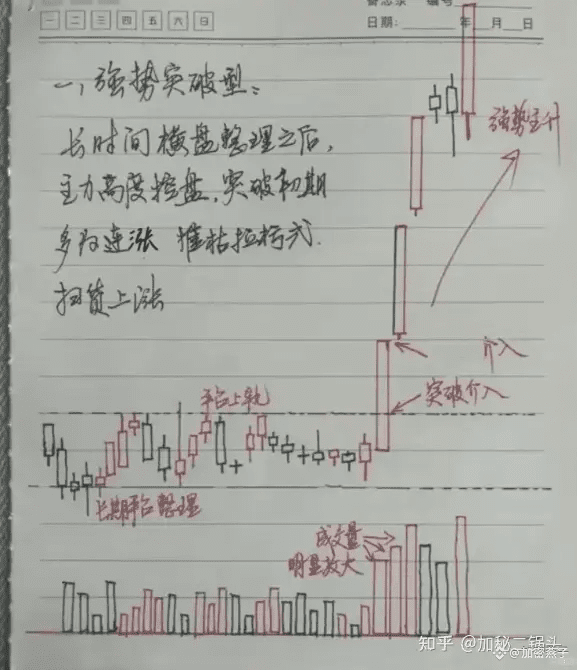 备忘录 编号
一 二 三 四 五 六 日
日期: 年 月 日
一、强势突破型:
长时间横盘整理之后,
主力高度控盘,突破初期
多为连涨 摧枯拉朽式
扫货上涨
强势主升
介入
突破介入
平台上轨
长期平台整理
成交量
明显放大
知乎 @加秘二锅头
@加密燕子